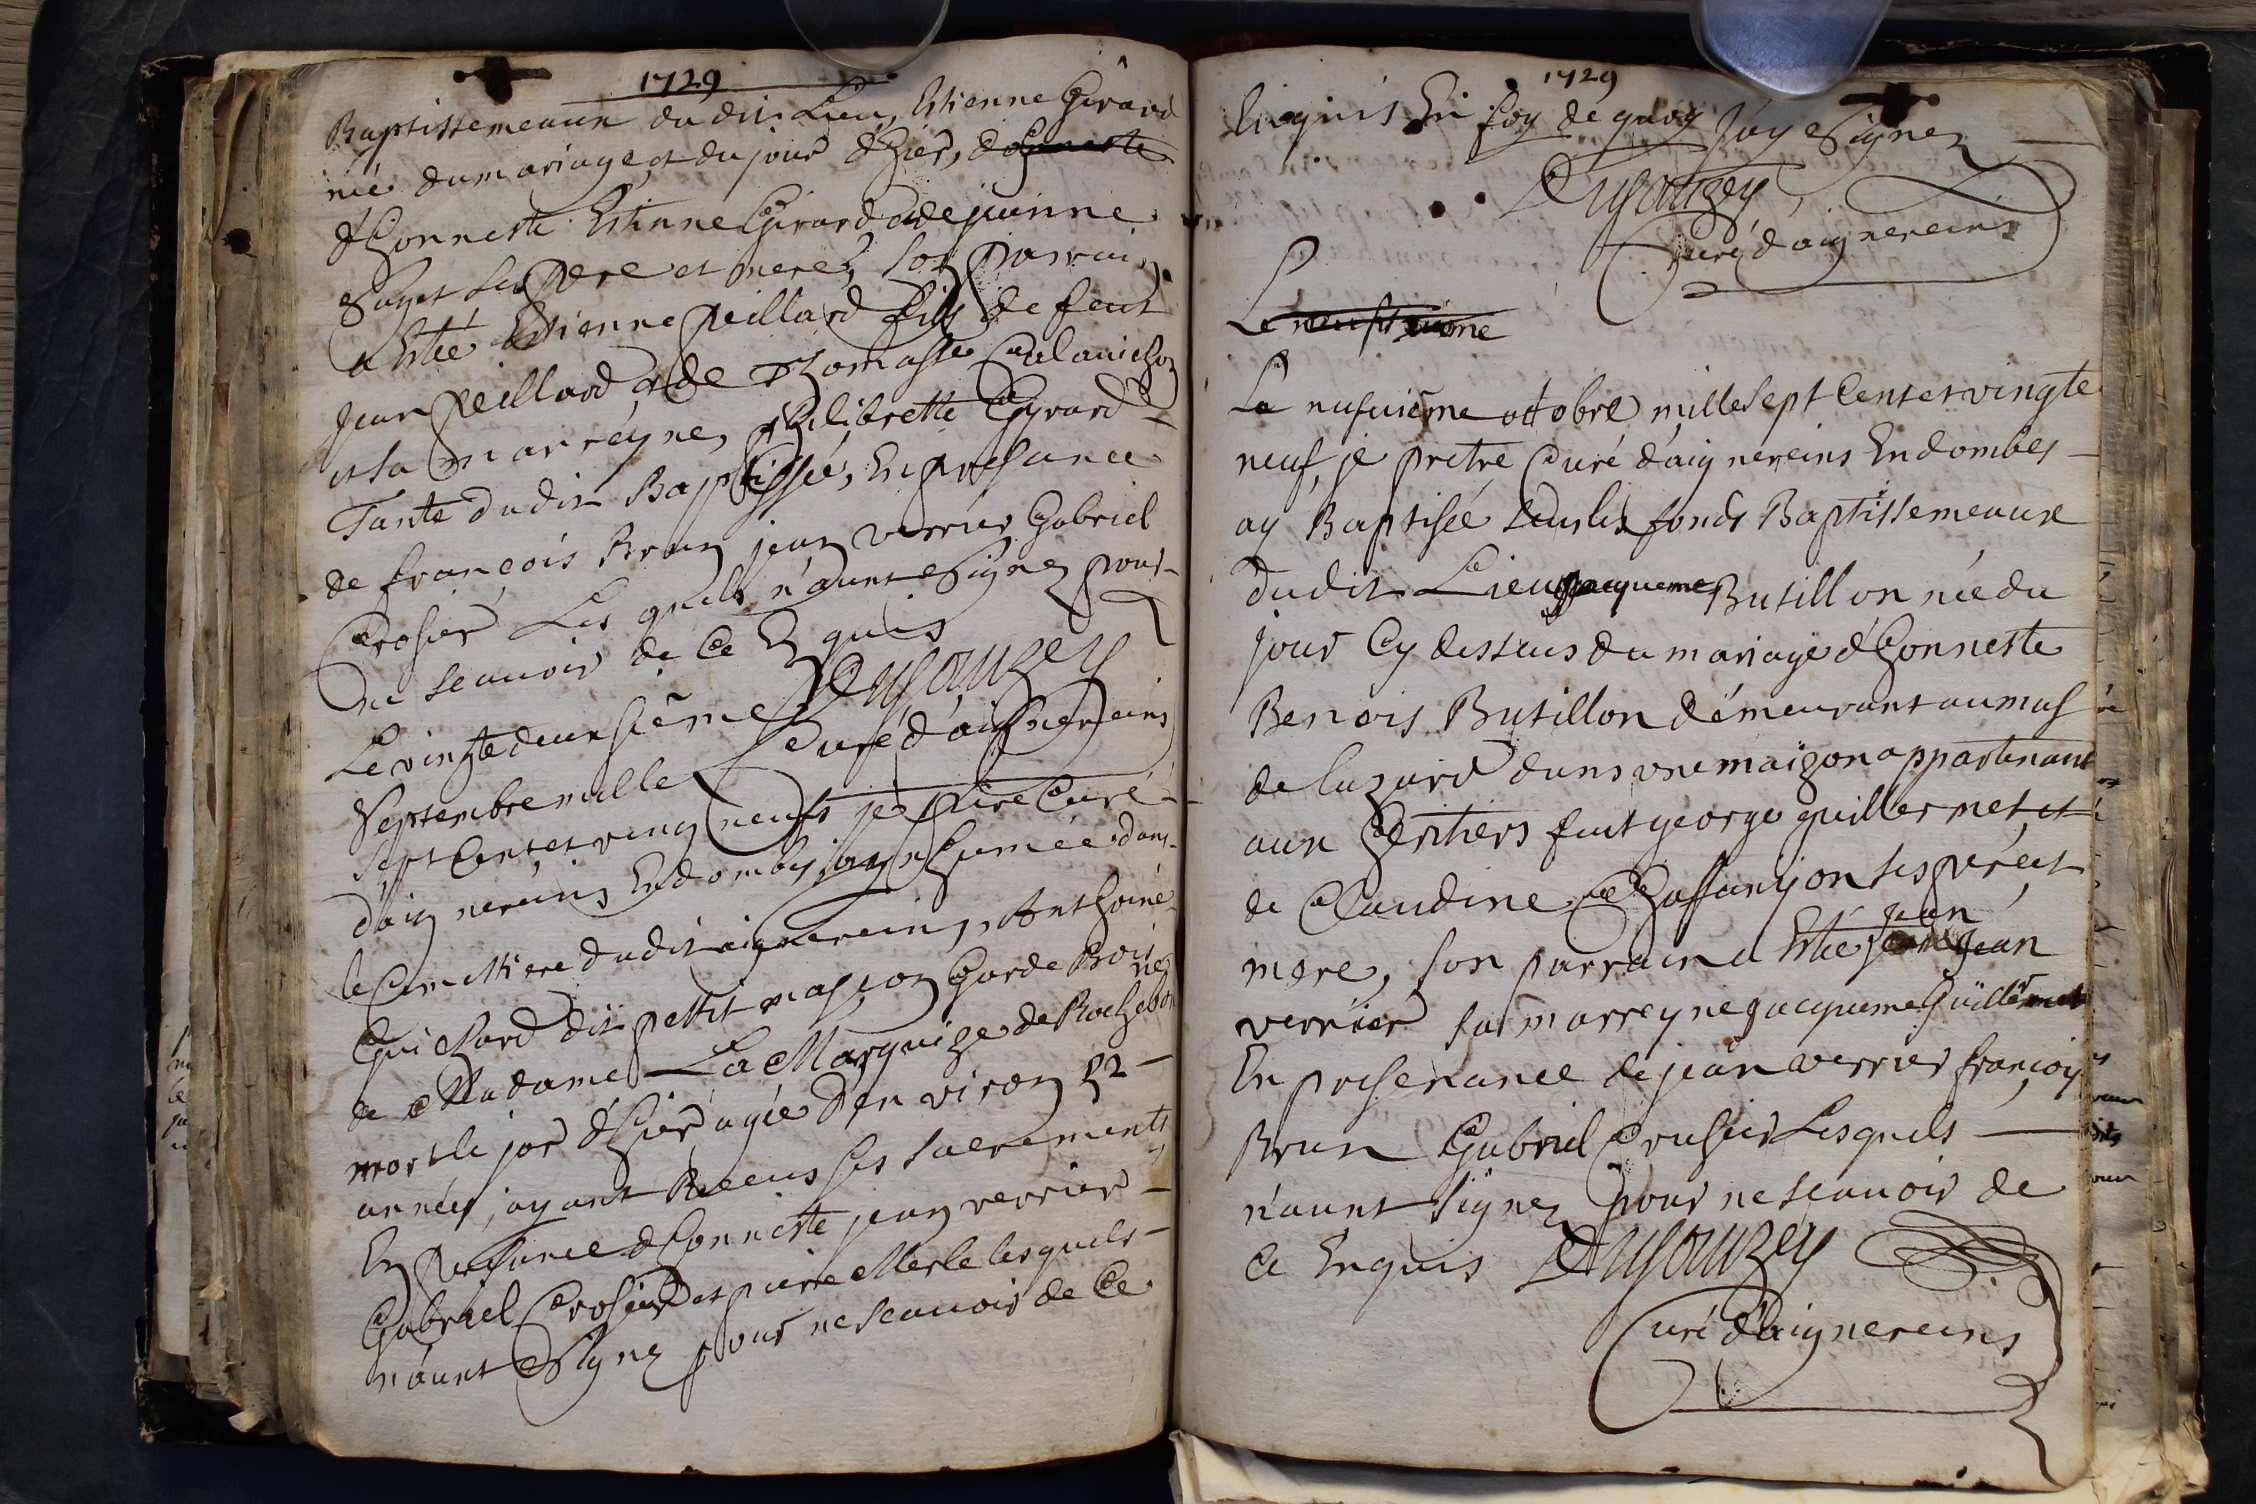 1729
Baptissemeaux du dit Lieu, Estienne Girard
né du mariage, et du jour d'hier, d'honneste
d'honneste Estienne Girard et de jeanne
Saget ses pere et mere, son parrain
a Estée Estienne peillard fils de feut
jean peillard et de Thomasse
et sa marreyne, philibrette Gyrard
Tante du dit Baptissée, En presance
de françois Brun jean verrier, Gabriel
Crosier Les quels n'aunt Signez pour
ne scauoir de ce Enquis
Dusauzey
Curé d'aignereins
Le vingtedeuxsiême
Septembre mille
sept Cent et vingt neufs je ptre Curé
d'aignereins En dombes jay inhumée dans
le Cimettiere du dit aignereins, Anthoine
Guichard dit pettit masson Garde Bois
de Madame La Marquize de Rochebonne
mort le jor d'hier agée d'en viron 52
années, ayant Receus ses sacrements
En presance d'honneste jean verrier
Gabriel Crosier et pierre Merle lesquels
n'aunt Signez pour ne scauoir de Ce
1729
Enquis En foy de quoy J'ay Signez
Dusauzey
Curé d'aignereins
Le neufsuiême
Le nufuiême octobre mille sept Cent et vingte
neuf, je pretre Curé d'aignereins En dombes
ay Baptisée sur les fonds Baptissemeaux
du dit Lieu Jacqueme Butillon née du
jour Cy dessus du mariage d'honneste
Benois Butillon démeurant au mas
de luzard dans vne maizon appartenant
aux héritiers faut george guillermet, et
de Claudine Chaffanjon ses père et
mere, son parrain a Estée jean Jean
verrier sa marreyne Jacqueme Guillermet
En presenance de jean verrier françois
Brun Gabriel Crusier Lesquels
n'aunt signez pour ne scauoir de
Ce Enquis Dusauzey
Curé d'aignereins